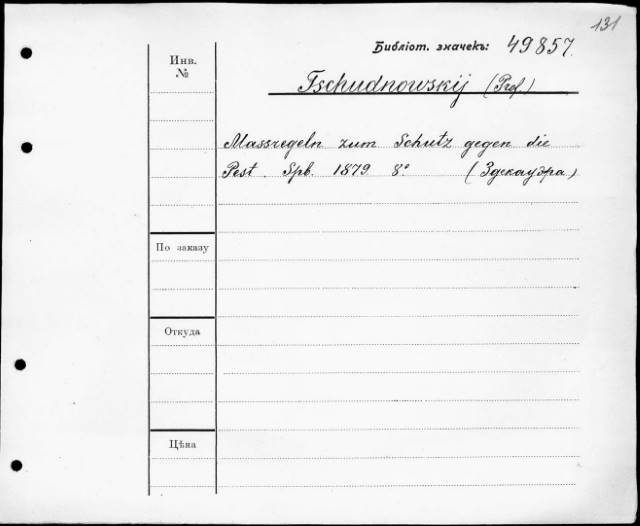 131
Библiот. значекъ: 49857.
Инв.
№
Tschudnowskij (Prof.)
Massregeln zum Schutz gegen die
Pest. Spb. 1879 8º (Здекауэра)
По заказу
Откуда
Цѣна